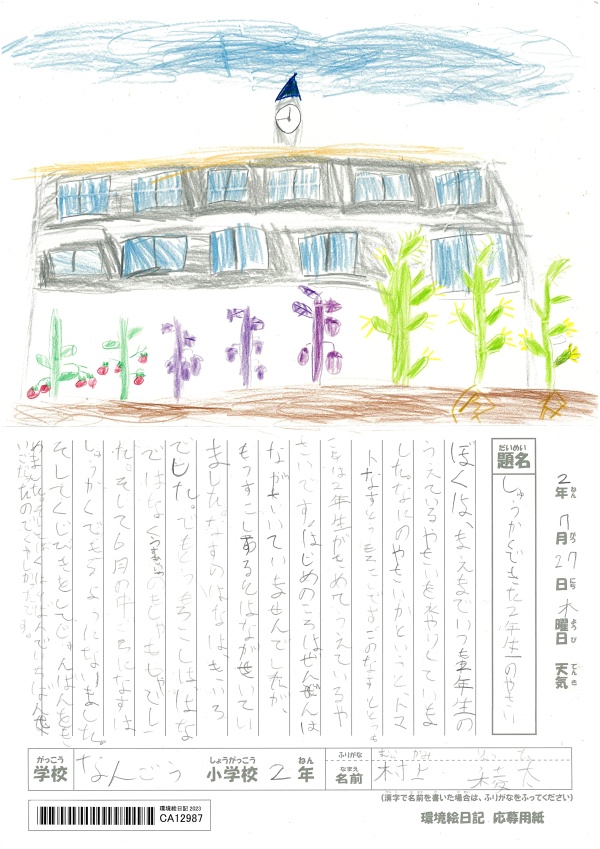 2年 7月 27日 木曜日 天気
ねん がつ にち ようび てんき
だいめい
題名
しゅうかくできた2年生のやさい
ぼくは、まえまでいつも2年生の
うえてるやさいを水やりしていま
した。なにのやさいかというと、トマ
トなすとうもろこしです。このなすととう
は2年生がきめてうえているや
さいです。はじめのころはぜんぜんは
ながさいていませんでしたが、
もうすこしあるとはながさいてい
ました。なすのはなは、きいろ
でした。でもとうもろこしは、はな
ではなくのもじゃもじゃでし
た。そして6月の中ごろになすは、
しゅうかくできるようになりました。
そしてくじびきをしてじゅんばんをき
めました。そしてぼくは
いごだったのでくやしかったです。
がっこう
学校 なんごう
しょうがっこう ねん
小学校 2年
ふりがな むらかみ りょうた
なまえ
名前 村上 稜太
(漢字で名前を書いた場合は、ふりがなをふってください)
環境絵日記 2023
CA12987
環境絵日記 応募用紙